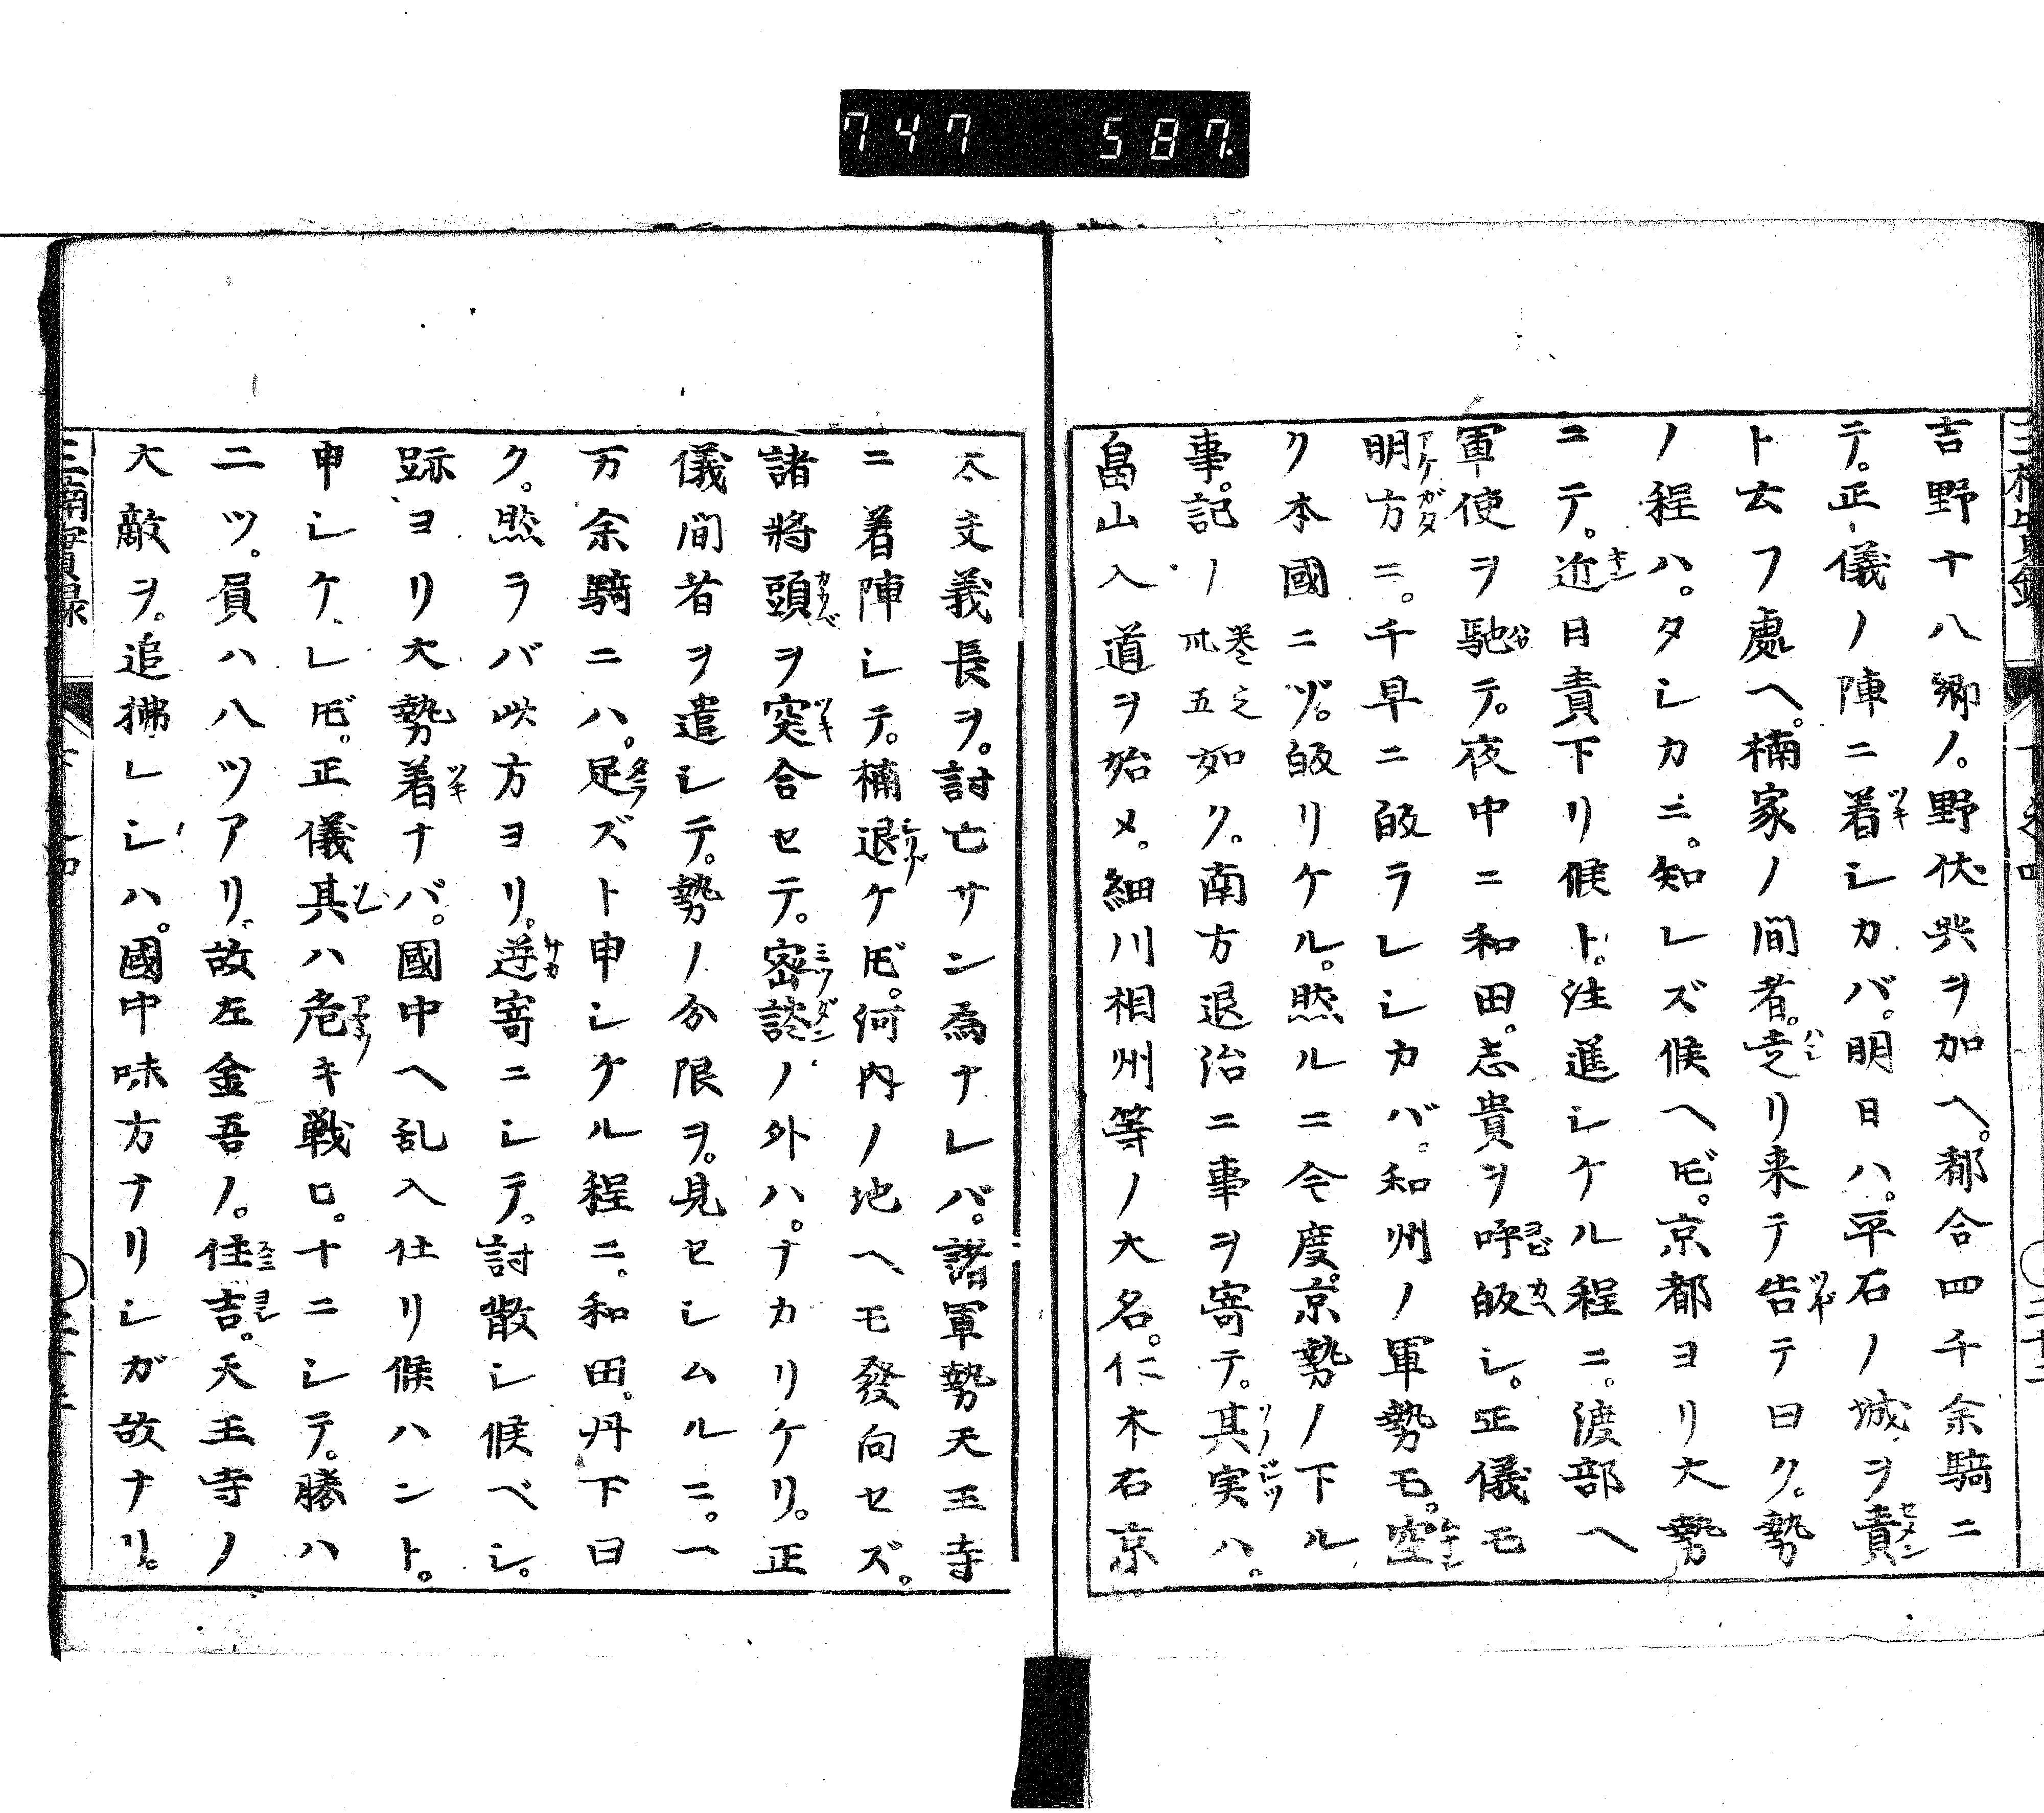 747 587
吉野十八郷ノ。野伏共ヲ加ヘ。都合四千余騎ニ
テ。正儀ノ陣ニ着シカバ。明日ハ。平石ノ城ヲ責
ト云フ處ヘ。楠家ノ間者。走リ来テ告テ曰ク。勢
ノ程ハ。タシカニ。知レズ候ヘ𪜈。京都ヨリ大勢
ニテ。近日責下リ候ト。注進シケル程ニ。渡部ヘ
軍使ヲ馳テ。夜中ニ和田。志貴ヲ呼皈シ。正儀モ
明方ニ。千早ニ皈ラレシカバ。和州ノ軍勢モ。空
ク本國ニゾ。皈リケル。然ルニ今度。京勢ノ下ル
事。記ノ卷之卅五如ク。南方退治ニ事ヲ寄テ。其実ハ。
畠山入道ヲ始メ。細川相州等ノ大名。仁木右京
太夫義長ヲ。討亡サン為ナレバ。諸軍勢天王寺
ニ着陣シテ。楠退ケ𪜈。河内ノ地ヘモ發向セズ。
諸將頭ヲ突合セテ。密談ノ外ハ。ナカリケリ。正
儀間者ヲ遣シテ。勢ノ分限ヲ。見セシムルニ。一
万余騎ニハ。足ズト申シケル程ニ。和田。丹下曰
ク。然ラバ此方ヨリ。逆寄ニシテ。討散シ候ベシ。
跡ヨリ大勢着ナバ。國中ヘ乱入仕リ候ハント。
申シケレ𪜈。正儀其ハ危キ戦ロ。十ニシテ。勝ハ
二ツ。負ハ八ツアリ。故左金吾ノ。住吉。天王寺ノ
大敵ヲ。追拂レシハ。國中味方ナリシガ故ナリ。